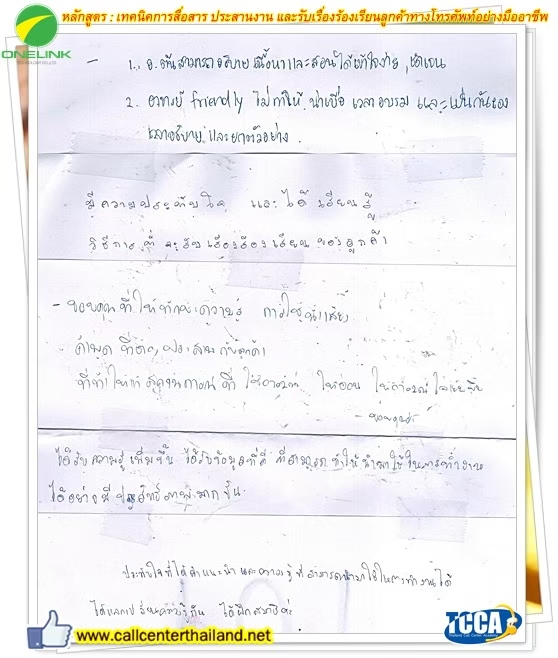 หลักสูตร : เทคนิคการสื่อสาร ประสานงาน และรับเรื่องร้องเรียนลูกค้าทางโทรศัพท์อย่างมืออาชีพ
ONELINK
- 1. อ.อธิบายเนื้อหาและสอนได้เข้าใจง่าย, ชัดเจน
2. อาจารย์ friendly ไม่ทำให้น่าเบื่อ เวลาอบรม และเป็นกันเอง
เวลาอธิบาย และยกตัวอย่าง.
มีความประทับใจ และได้เรียนรู้
วิธีการที่จะรับเรื่องร้องเรียนของลูกค้า
- ขอบคุณที่ให้ทักษะความรู้ การใช้น้ำเสียง
คำพูด ที่ กับลูกค้า
ที่ทำให้ ที่ใช้อารมณ์ ให้อ่อน ให้อารมณ์
- ขอบคุณค่ะ
ได้รับความรู้เพิ่มขึ้น ได้รับข้อมูลที่ดี ที่สามารถทำให้นำมาใช้ในการทำงาน
ได้อย่างมีประสิทธิภาพมากขึ้น.
ประทับใจที่ได้คำแนะนำ และความรู้ที่สามารถนำมาใช้ในการทำงานได้
ได้แลกเปลี่ยนความรู้กัน ได้ฝึกสมาธิค่ะ
www.callcenterthailand.net
TCCA